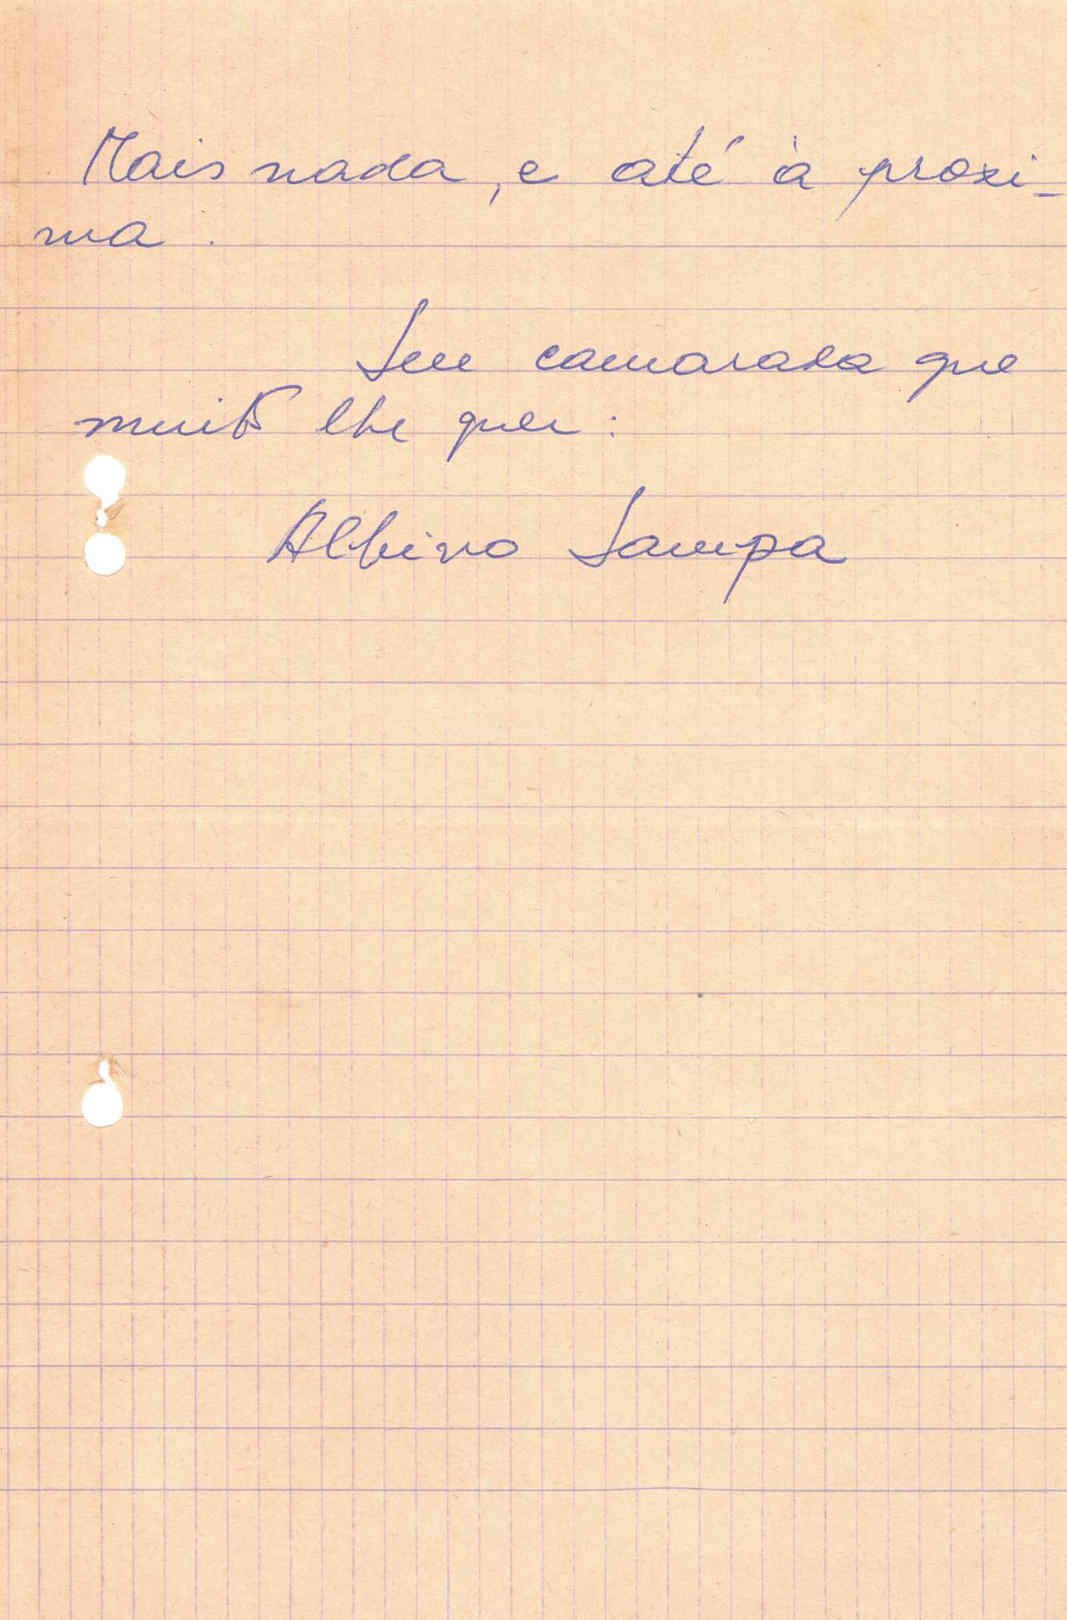 Mais nada, e até à proxi-
ma.
Seu camarada que
muito lhe quer:
Albino Sampa